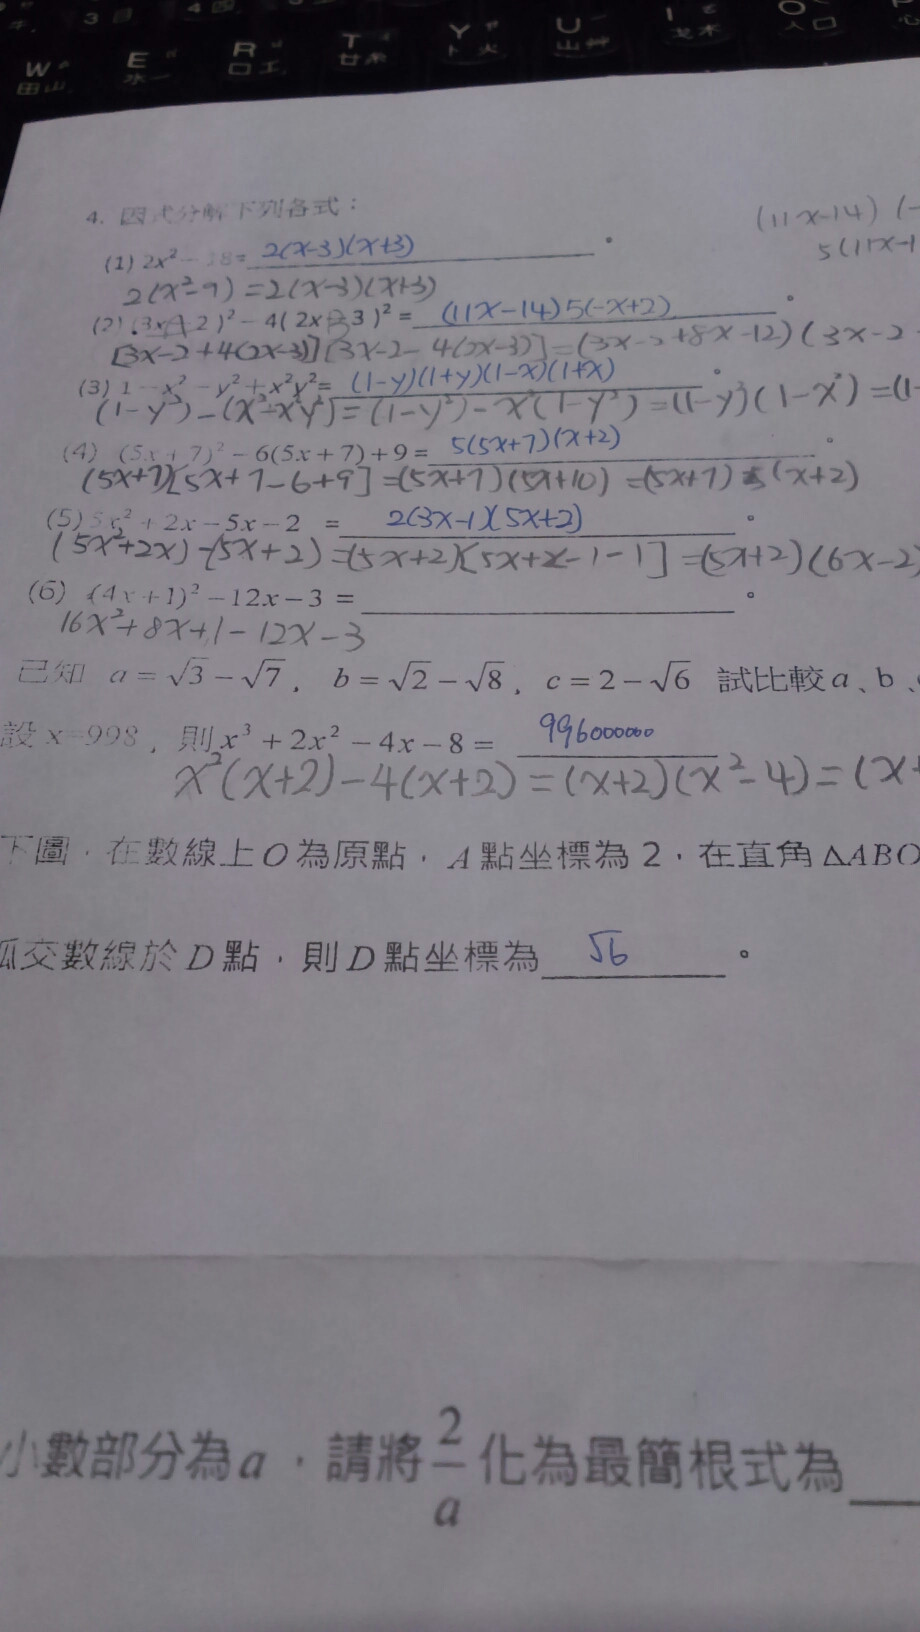 3 ㄐ 4 四
W 田 山 E 水 一 R 口 工 T 廿 Y 卜 火 U 山 I 戈 木 O 人 口 心
4. 因式分解下列各式：
(11x-14)(-
(1) 2x² - 18 = 2(x-3)(x+3)。
5(11x-1
2(x²-9)=2(x-3)(x+3)
(2) (3x-2)² - 4(2x-3)² = (11x-14)5(-x+2)。
[3x-2+4(2x-3)][3x-2-4(2x-3)]=(3x-2+8x-12)(3x-2
(3) 1 - x² - y² + x²y² = (1-y)(1+y)(1-x)(1+x)。
(1-y²)-(x²-x²y²)=(1-y²)-x²(1-y²)=(1-y²)(1-x²)=(1-
(4) (5x+7)² - 6(5x+7)+9 = 5(5x+7)(x+2)。
(5x+7)[5x+7-6+9]=(5x+7)(5x+10)=(5x+7)5(x+2)
(5) 5x² + 2x - 5x - 2 = 2(3x-1)(5x+2)。
(5x²+2x)-(5x+2)=(5x+2)[5x+x-1-1]=(5x+2)(6x-2)
(6) (4x+1)² - 12x - 3 = 。
16x²+8x+1-12x-3
已知 a = √3 - √7, b = √2 - √8, c = 2 - √6 試比較 a、b、
設 x=998, 則 x³ + 2x² - 4x - 8 = 996000000
x²(x+2)-4(x+2)=(x+2)(x²-4)=(x+
下圖,在數線上 O 為原點, A 點坐標為 2,在直角 △ABO
弧交數線於 D 點,則 D 點坐標為 √6。
小數部分為 a,請將 2/a 化為最簡根式為